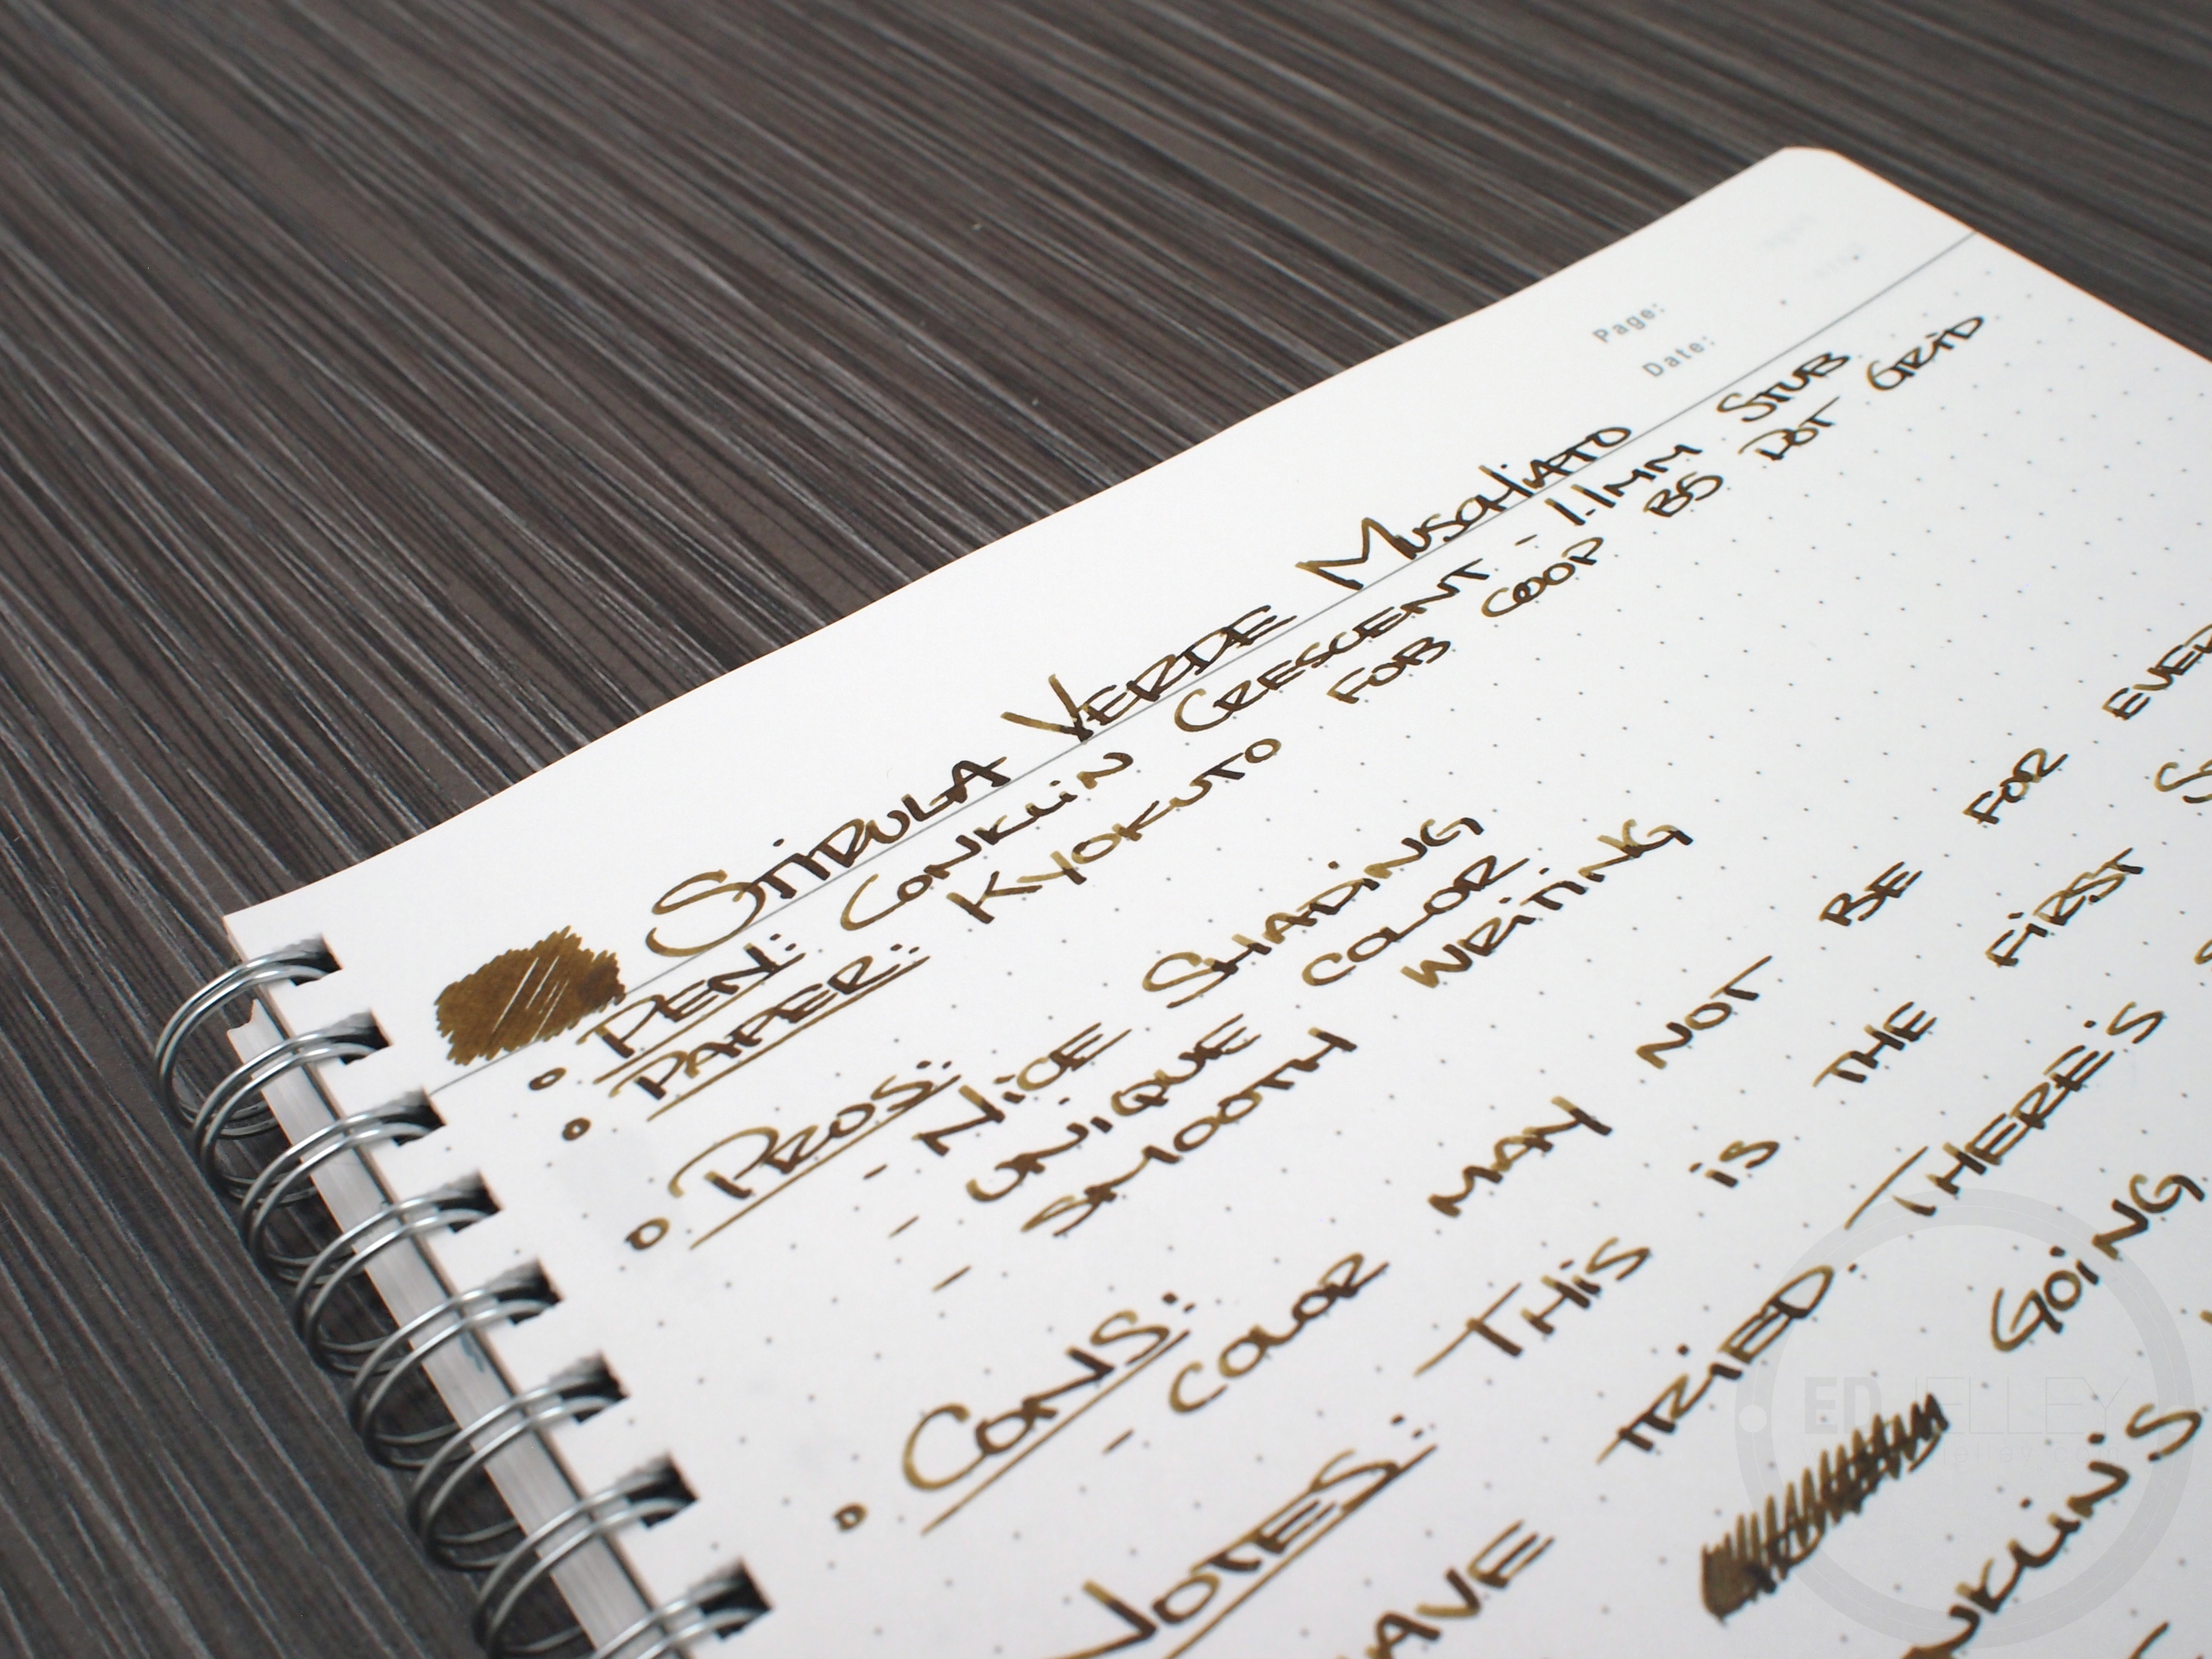 Page:
Date:
STIPULA VERDE MUSCHIATO
PEN: CONKLIN CRESCENT - 1.1MM STUB
PAPER: KYOKUTO FOB COOP B5 DOT GRID
PROS:
- NICE SHADING
- UNIQUE COLOR
- SMOOTH WRITING
CONS:
- COLOR MAY NOT BE FOR
NOTES: THIS IS THE FIRST
TRIED. THERE'S
GOING
ED JELLEY